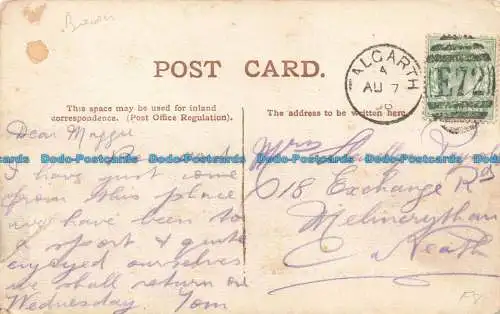 POST CARD.
This space may be used for inland
correspondence. (Post Office Regulation).
The address to be written here
TALGARTH
A
AU 7
E72
Dear Maggie
I have just come
from this place
we have been to
a sport & quite
enjoyed ourselves
we shall return on
Wednesday. Tom
Mrs
618 Exchange Rd
Melincrythan
Neath
Dodo-Postcards Dodo-Postcards Dodo-Postcards Dodo-Postcards Dodo-Postcards